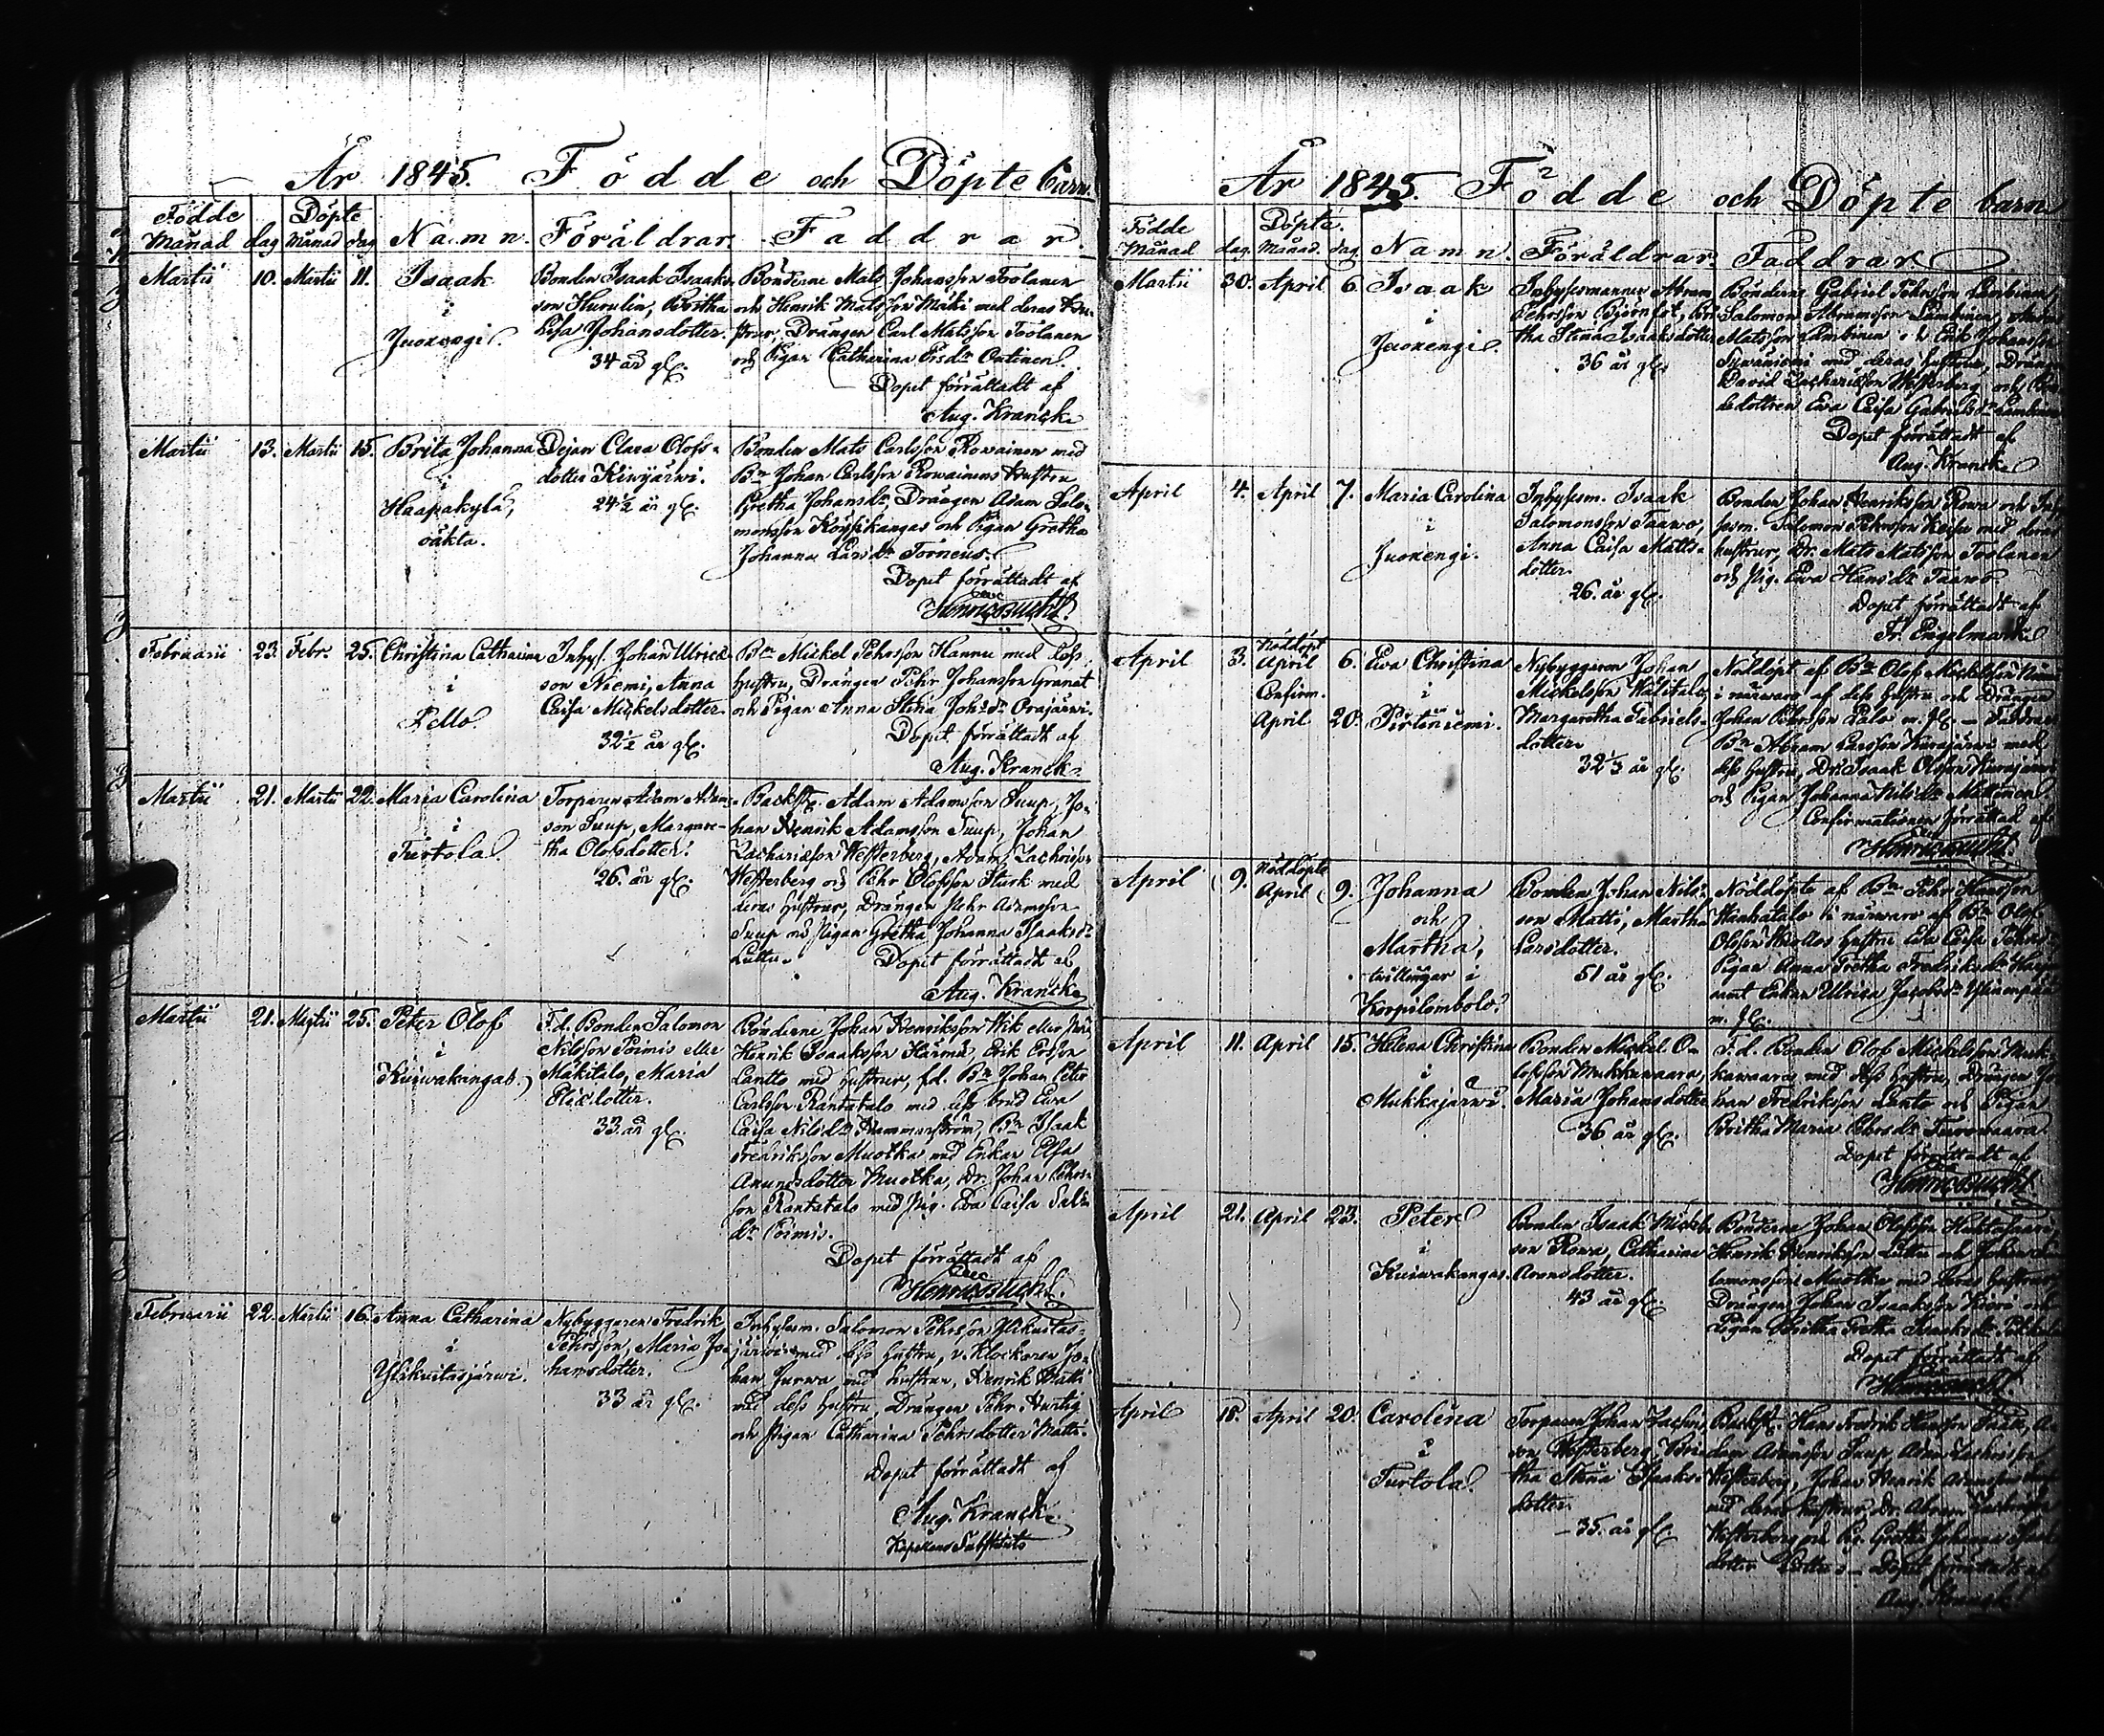 År 1845. Födde och Döpte barn.
Födde Döpte
Månad dag Månad dag Namn. Föräldrar. Faddrar.
Martii 10. Martii 11. Isaak
i
Juoxengi.
Bonden Isaak Isaaks-
son Hurulin, Britha
Lisa Johansdotter.
34 år gl.
Bönderne Mats Johansson Toolanen
och Henrik Matsson Mäki med deras hu-
strur, Drängen Carl Matsson Toolanen
och Pigan Catharina Ersdr
Dopet förrättadt af
Aug. Kranck
Martii 13. Martii 15. Brita Johanna
i
Haapakylä,
oäkta.
Dejan Clara Olofs-
dotter Kinnjärwi.
24½ år gl.
Bonden Mats Carlsson Rowainen med
Bn Johan Carlsson Rowainens hustru
Gretha Johansdr, Drängen Adam Salo-
monsson Köysikangas och Pigan Gretha
Johanna Larsdr Torneus.
Dopet förrättadt af
Februarii 23. Febr. 25. Christina Catharina
i
Pello.
Inhys. Johan Ulrics-
son Niemi, Anna
Caisa Mickelsdotter.
32½ år gl.
Bn Mickel Pehrsson Hannu med dess
hustru, Drängen Pehr Johansson Granat
och Pigan Anna Stina Johsdr Orajärwi.
Dopet förrättadt af
Aug. Kranck
Martii 21. Martii 22. Maria Carolina
i
Turtola.
Torparen Adam Adams-
son Suup, Margare-
tha Olofsdotter.
26. år gl.
Backst. Adam Adamsson Suup, Jo-
han Henrik Adamsson Suup, Johan
Zachrisson Westerberg, Adam Zachrisson
Westerberg och Pehr Olofsson Stark med
deras hustrur, Drängen Pehr Adamsson
Suup och Pigan Gretha Johanna Isaksdr
Luttu. Dopet förrättadt af
Aug. Kranck
Martii 21. Martii 25. Peter Olof
i
Kuiwakangas.
F.d. Bonden Salomon
Nilsson Poimis eller
Mäkitalo, Maria
Ericsdotter.
33 år gl.
Bönderne Johan Henriksson Wik eller
Henrik Isaaksson Härmä, Erik Ersson
Lantto med hustrur, f.d. Bn Johan Peter
Carlsson Rantatalo med dess brud Ewa
Caisa Nilsdr Hammarström, Bn Isaak
Fredriksson Muotka med Enkan Elsa
Amundsdotter Muotka, Dr. Johan Pehrs-
son Rantatalo med Pig. Ewa Caisa Sal:s
dr Poimis.
Dopet förrättadt af
Februarii 22. Martii 16. Anna Catharina
i
Ylikuitasjärwi.
Nybyggaren Fredrik
Pehrsson, Maria Jo-
hansdotter.
33 år gl.
Inhysm. Salomon Pehrsson Ylikuitas-
järwi med dess hustru, v. Klockaren Jo-
han Jurwa med hustrun, Henrik Matti
med dess hustru, Drängen Pehr Hurtig
och Pigan Catharina Pehrsdotter Matti.
Dopet förrättadt af
Aug. Kranck
År 1845. Födde och Döpte barn
Födde Döpte.
Månad dag. Månad. dag. Namn. Föräldrar. Faddrar.
Martii 30. April 6. Isaak
i
Juoxengi.
Inhysesmannen Abram
Pehrsson Björnfot, Bri-
tha Stina Isaaksdotter
36 år gl.
Bönderne Gabriel Pehrsson Lambinen,
Salomon Abramsson Lambinen,
Matsson Lambinen och Erik Johansson
med deras hustrur, Drängen
David Zachrisson Westerberg och
dedottren Ewa Caisa Gabrielsdr Lambinen
Dopet förrättadt af
Aug. Kranck
April 4. April 7. Maria Carolina
i
Juoxengi.
Inhysesm. Isaak
Salomonsson Taawo,
Anna Caisa Matts-
dotter.
26. år gl.
Bonden Johan Henriksson Rowa och
Salomon Pehrsson Keisu med deras
hustrur, Dr. Mats Matsson Toolanen
och Pig. Ewa Hansdr Taawo.
Dopet förrättadt af
Fr. Engelmark
April 3. Nöddöpt
April 6. Ewa Christina
Confirm.
i
April 20. Pirtiniemi.
Nybyggaren Johan
Mickelsson Wälitalo,
Margaretha Gabriels-
dotter
32⅓ år gl.
Nöddöpt af Bn Olof Mickelsson
i närwaro af dess hustru och Drängen
Johan Pehrsson Palo m. fl. — Faddrar
Bn Abram Larsson Kurajärwi med
dess hustru, Dr. Isaak Olsson Kurajärwi
och Pigan Johanna Nilsdr Mettänen
Confirmationen förrättad af
April 9. Nöddöpte
April 9. Johanna
och
Martha,
twillingar i
Korpilombolo.
Bonden Johan Nils-
son Matti, Martha
Larsdotter.
51 år gl.
Nöddöpte af Bn Pehr Hansson
i närwaro af Bn Olof
Olsson hustru Ewa Caisa Pehrs-
Pigan Anna Gretha Fredriksdr
samt Enkan Ulrica Jacobsdr
m. fl.
April 11. April 15. Helena Christina
i
Mukkajärwi.
Bonden Mickel O-
lofsson Mukkawaara,
Maria Johansdotter
36 år gl.
F.d. Bonden Olof Mickelsson Muk-
kawaara med dess hustru, Drängen Jo-
han Fredriksson Lanto och Pigan
Britha Maria Pehrsdr
Dopet förrättadt af
April 21. April 23. Peter
i
Kuiwakangas.
Bonden Isaak Mickels-
son Rowa, Catharina
Aronsdotter.
43 år gl.
Bönderne Johan Olofsson
Henrik Henriksson Luttu och Johan Sa-
lomonsson Muotka med deras hustrur
Drängen Johan Isaaksson och
Pigan Britha Gretha Isaaksdr
Dopet förrättadt af
April 18. April 20. Carolina
i
Turtola.
Torparen Johan Zachris-
son Westerberg, Bri-
tha Stina Isaaks-
dotter.
35. år gl.
Backst. Hans Fredrik Hansson
dam Adamsson Suup, Adam Zachrisson
Westerberg, Johan Henrik Adamsson
med deras hustrur, Dr. Abram Zachrisson
Westerberg och Pig. Gretha Johanna Isaaks-
dotter Luttu. — Dopet förrättadt af
Aug. Kranck